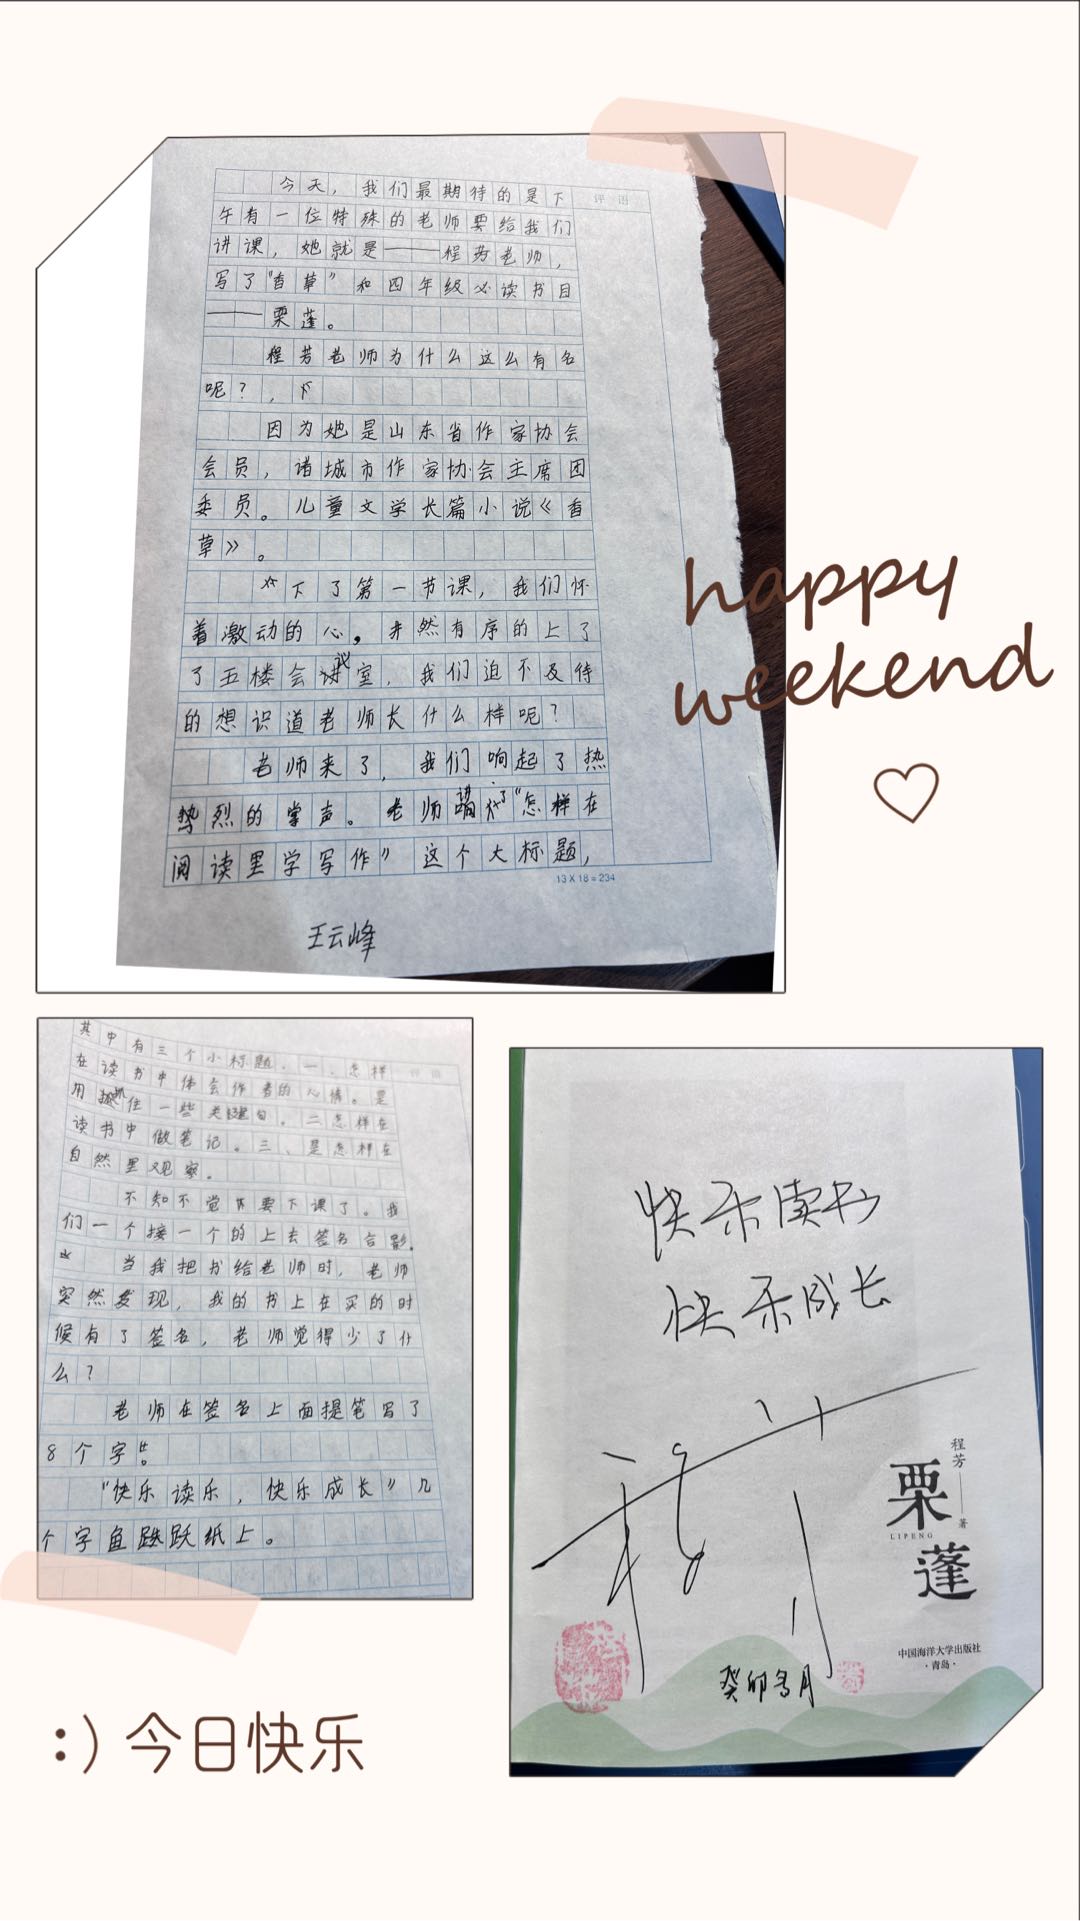 今天，我们最期待的是下
评语
午有一位特殊的老师要给我们
讲课，她就是——程芳老师，
写了“香草”和四年级必读书目
——栗蓬。
程芳老师为什么这么有名
呢？，下
因为她是山东省作家协会
会员，诸城市作家协会主席团
委员。儿童文学长篇小说《香
草》。
下了第一节课，我们怀
着激动的心，井然有序的上了
了五楼会议室，我们迫不及待
的想识道老师长什么样呢？
老师来了，我们响起了热
热烈的掌声。老师讲了“怎样在
阅读里学写作”这个大标题，
13 X 18 = 234
王云峰
happy
weekend
其中有三个小标题。一、怎样
评语
在读书中体会作者的心情。是
用抓住一些关键句。二怎样在
读书中做笔记。三、是怎样在
自然里观察。
不知不觉要下课了。我
们一个接一个的上去签名合影。
当我把书给老师时，老师
突然发现，我的书上在买的时
候有了签名，老师觉得少了什
么？
老师在签名上面提笔写了
8个字。
“快乐读乐，快乐成长”几
个字鱼跃纸上。
快乐读书
快乐成长
程芳
程芳 著
栗蓬
LIPENG
中国海洋大学出版社
·青岛·
癸卯冬月
:) 今日快乐